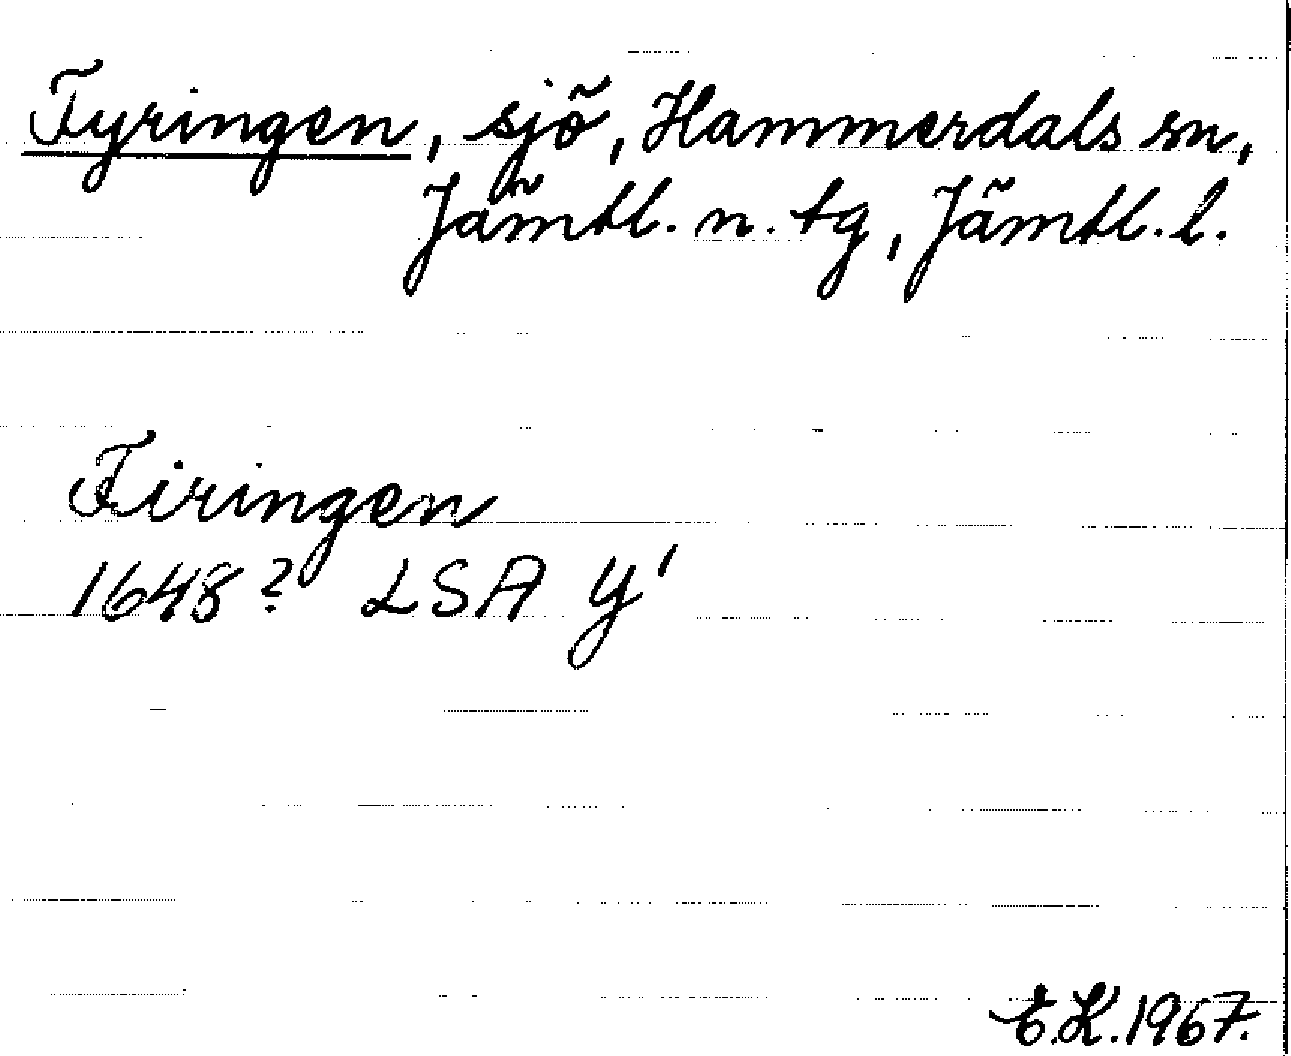 Fyringen, sjö, Hammerdals sn,
Jämtl. n. tg, Jämtl. l.
Firingen
1648? LSA Y'
E.K. 1967.